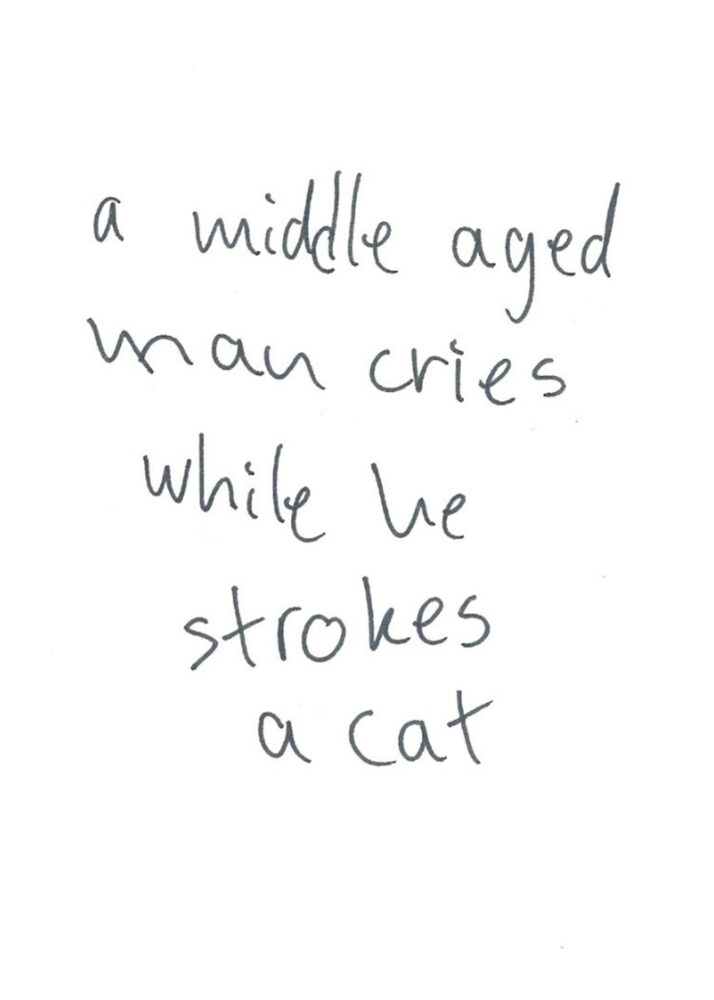 a middle aged
man cries
while he
strokes
a cat